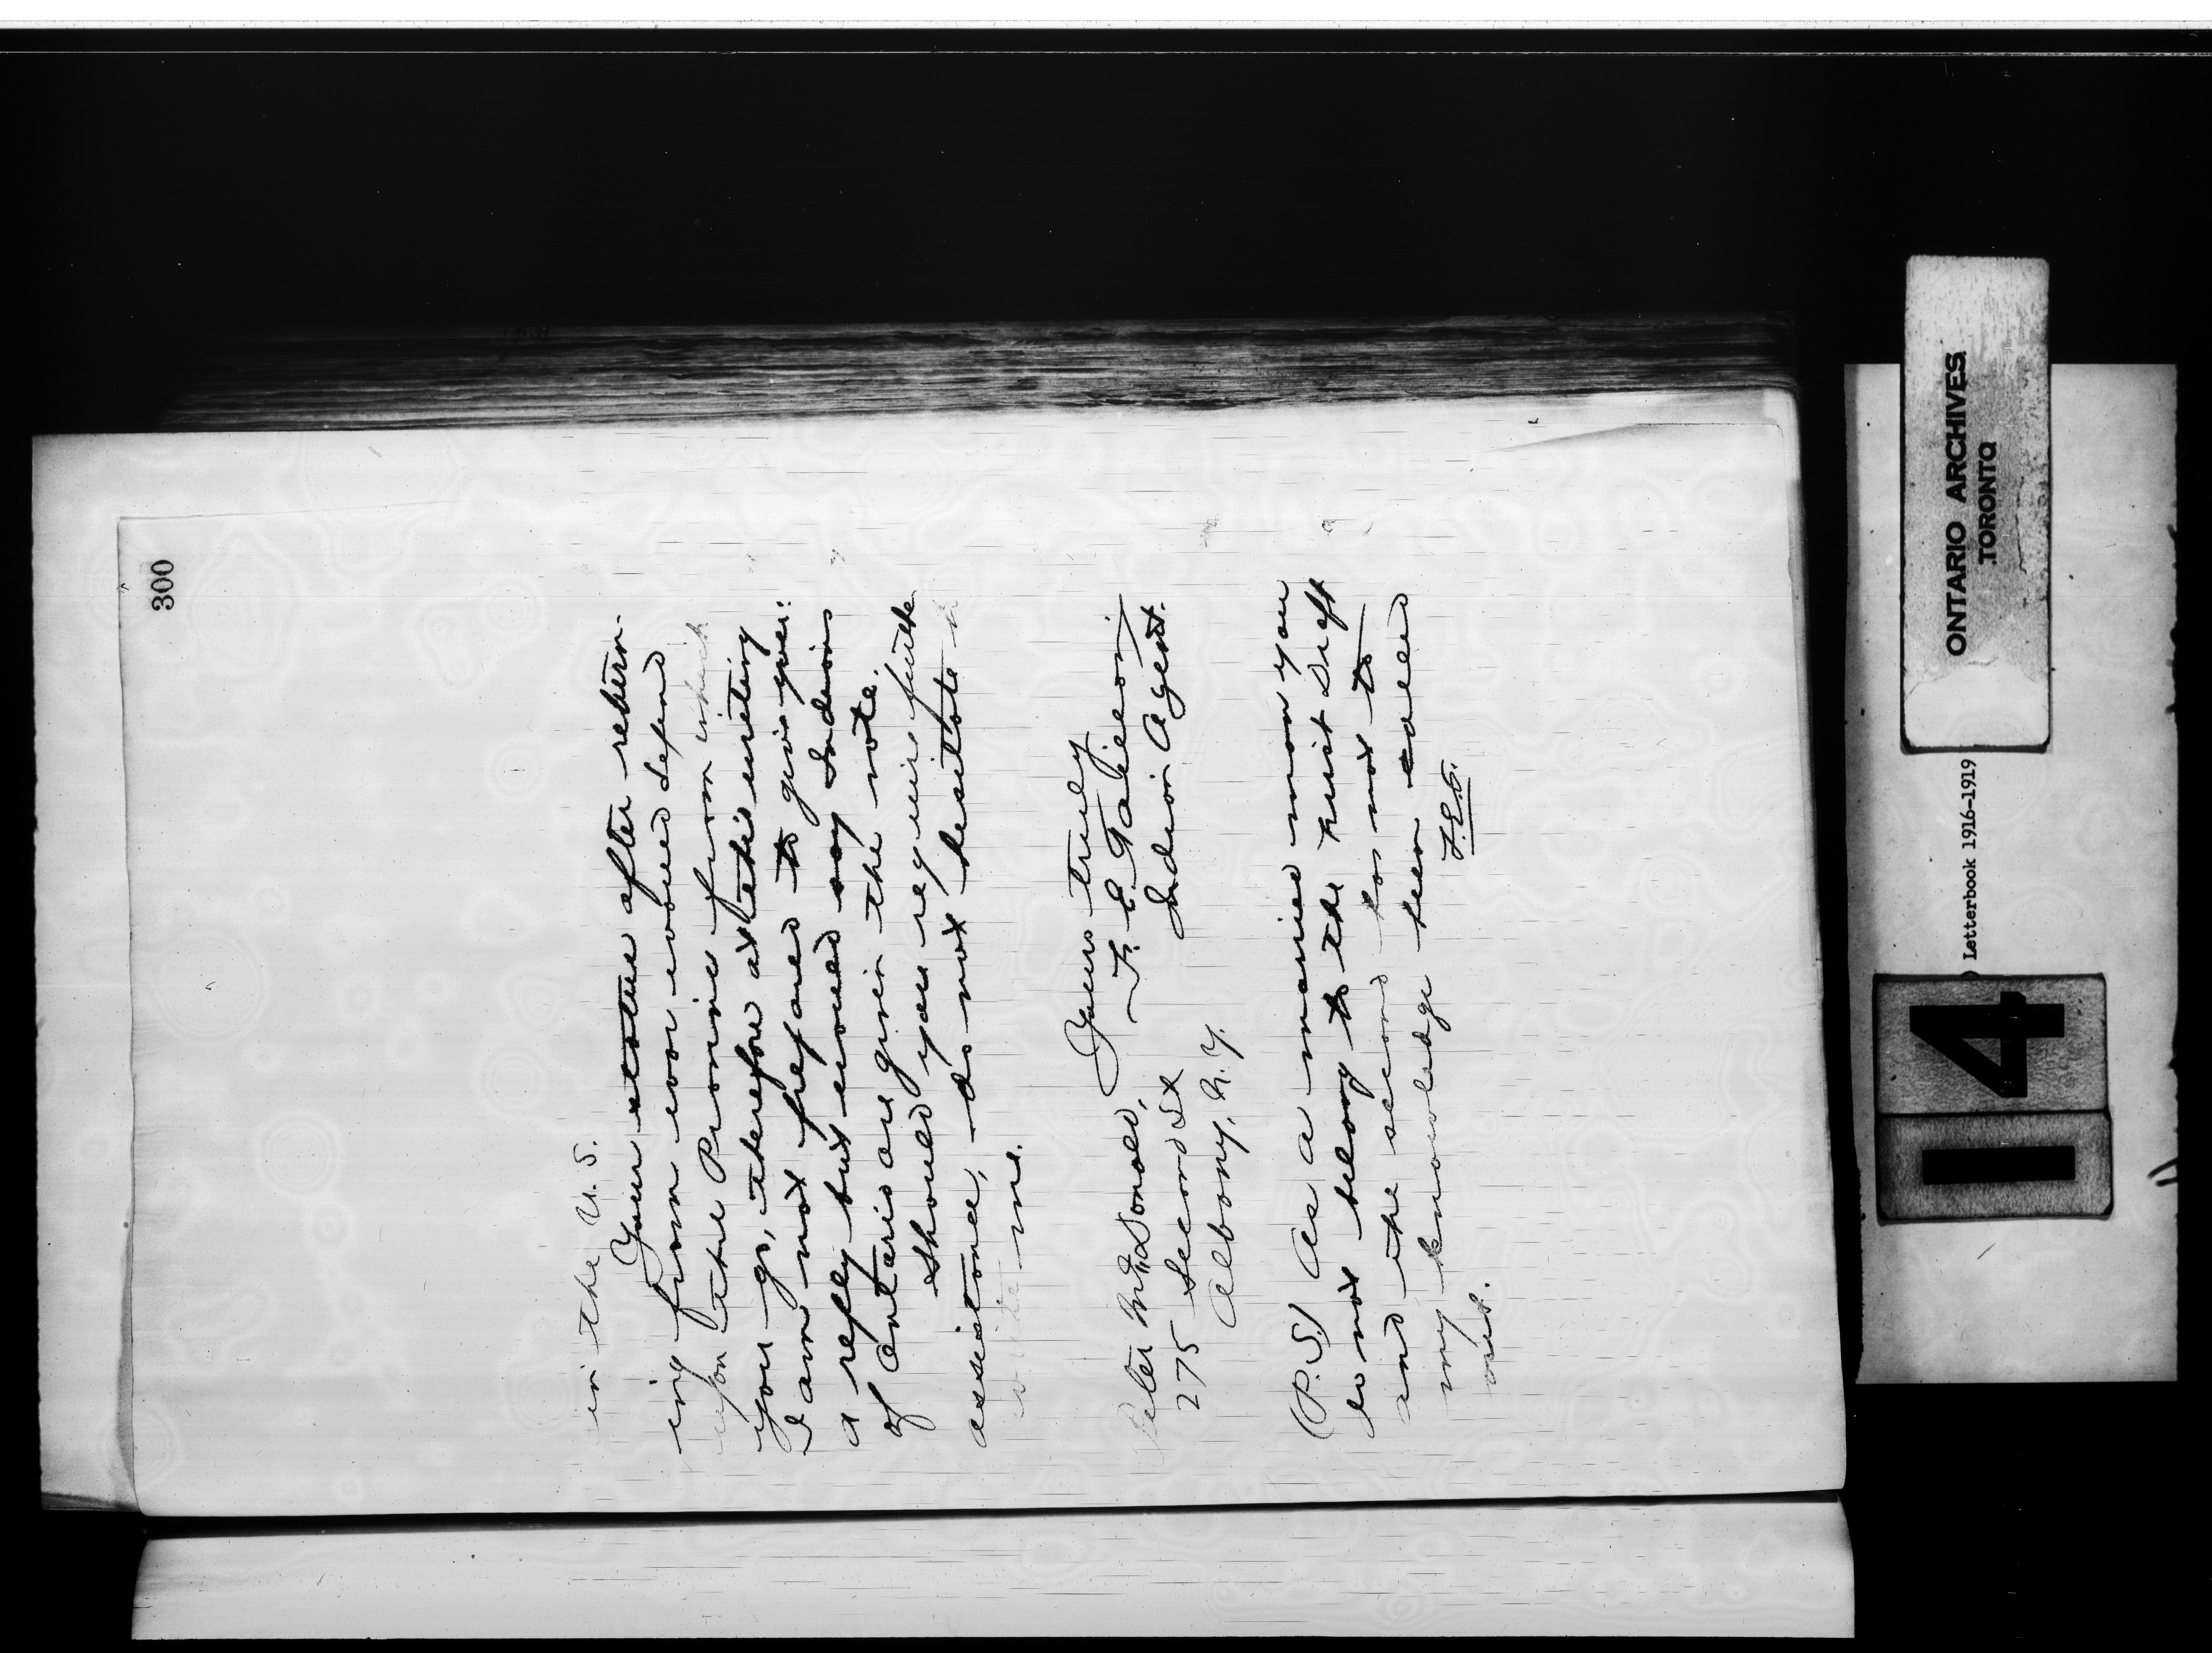 300
in the U.S.
Your status after return-
ing from war would depend
upon the Province from which
you go, therefore at this writing
I am not prepared to give you
a reply but would say Indians
of Ontario are given the vote.
Should you require further
assistance, do not hesitate to
write me.
Yours truly
F. E.
Indian Agent.
Peter McDonald,
275 Second St
Albany, N.Y.
(P.S.) As a married man you
do not belong to the first Draft
and the second has not to
my knowledge been called
out.
ONTARIO ARCHIVES
TORONTO
Letterbook 1916-1919
14